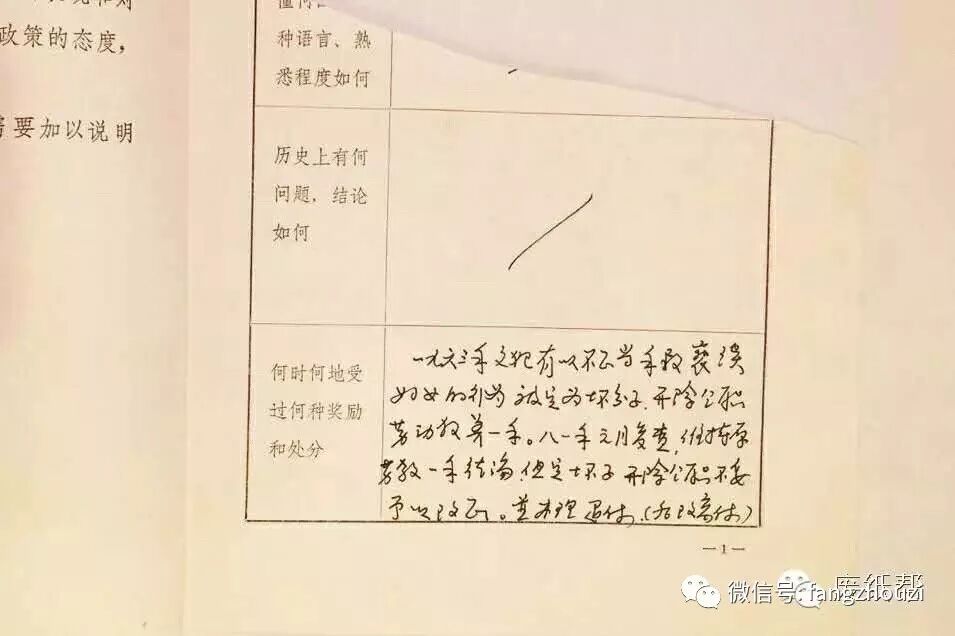 政策的态度，
要加以说明
种语言、熟
悉程度如何
历史上有何
问题，结论
如何
何时何地受
过何种奖励
和处分
一九六三年又犯有以不正当手段亵渎
妇女的行为 被定为坏分子、开除公职
劳动教养一年。八一年元月复查，维持原
劳教一年结论，但定坏分子 开除公职不妥
予以改正。并办理退休.（后改离休）
—1—
微信号: fangzhouzi
废纸帮